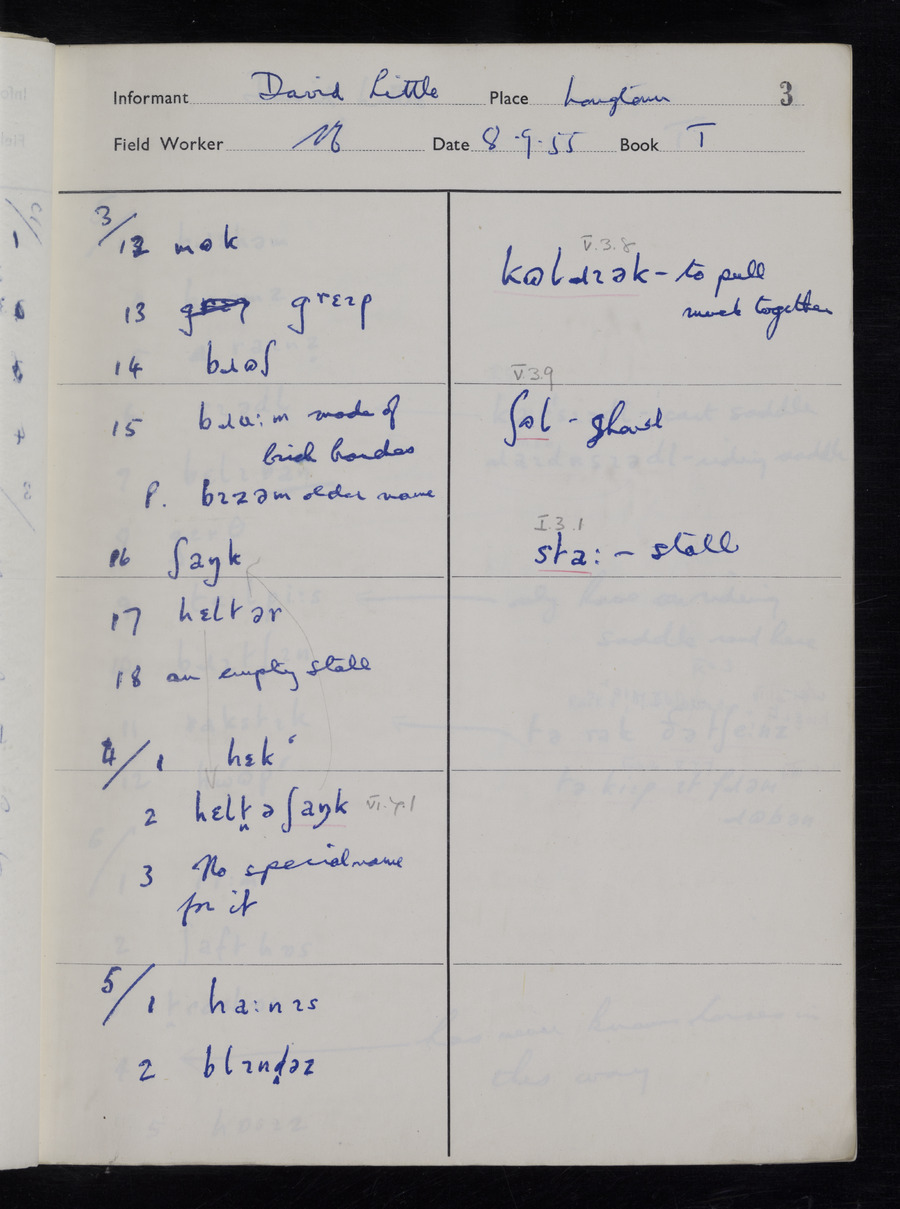 Informant David Little Place Longtown 3
Field Worker Date 8.9.55 Book I
3/12 mɵk
13 grɛɪp
14 bɹɵʃ
15 bɹɑ:m made of
brich branches
P. bɪzəm older name
16 ʃaŋk
17 hɛltər
18 an empty stall
4/1 hɛk
2 hɛlt̪əʃaŋk VI.9.1
3 No special name
for it
5/1 ha:nɪs
2 blɪnd̪əz
V.3.8
kɵldɹək – to pull
muck together
V.3.9
ʃɵl – shovel
I.3.1
sta: – stall